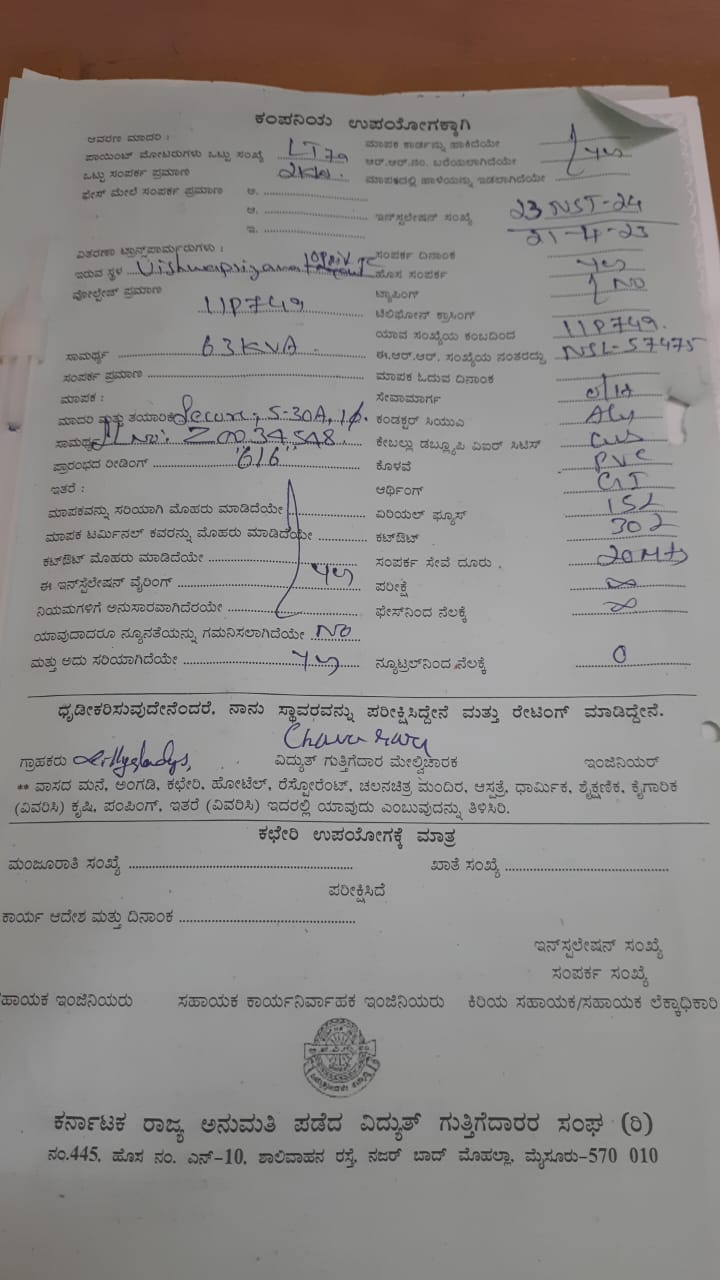 ಕಂಪನಿಯ ಉಪಯೋಗಕ್ಕಾಗಿ
ಆವರಣ ಮಾದರಿ :
ಮಾಪಕ ಕಾರ್ಡನ್ನು ಹಾಕಿದೆಯೇ
ಪಾಯಿಂಟ್ ಮೋಟರುಗಳು ಒಟ್ಟು ಸಂಖ್ಯೆ LT
ಆರ್.ಆರ್.ನಂ. ಬರೆಯಲಾಗಿದೆಯೇ yes
ಒಟ್ಟು ಸಂಪರ್ಕ ಪ್ರಮಾಣ 2KW.
ಮಾಪಕದಲ್ಲಿ ಹಾಳೆಯನ್ನು ಇಡಲಾಗಿದೆಯೇ
ಫೇಸ್ ಮೇಲೆ ಸಂಪರ್ಕ ಪ್ರಮಾಣ ಅ.
ಆ.
ಇನ್‌ಸ್ಪಲೇಷನ್ ಸಂಖ್ಯೆ 23 NST-24
ಇ.
21-4-23
ವಿತರಣಾ ಟ್ರಾನ್ಸ್‌ಪಾರ್ಮರುಗಳು :
ಸಂಪರ್ಕ ದಿನಾಂಕ
ಇರುವ ಸ್ಥಳ
ಹೊಸ ಸಂಪರ್ಕ yes
ವೋಲ್ಟೇಜ್ ಪ್ರಮಾಣ 11P749
ಟ್ಯಾಪಿಂಗ್ NO
ಟೆಲಿಫೋನ್ ಕ್ರಾಸಿಂಗ್
ಯಾವ ಸಂಖ್ಯೆಯ ಕಂಬದಿಂದ 11P749.
ಸಾಮರ್ಥ್ಯ 63KVA.
ಈ.ಆರ್.ಆರ್. ಸಂಖ್ಯೆಯ ನಂತರದ್ದು NSL-57475
ಸಂಪರ್ಕ ಪ್ರಮಾಣ
ಮಾಪಕ ಓದುವ ದಿನಾಂಕ
ಮಾಪಕ :
ಸೇವಾಮಾರ್ಗ O/H
ಮಾದರಿ ಮತ್ತು ತಯಾರಿಕೆ Secure, 5-30A, 1ϕ.
ಕಂಡಕ್ಟರ್ ಸಿಯುಎ Aly
ಸಾಮರ್ಥ್ಯ Sl No: Z0034548.
ಕೇಬಲ್ಲು ಡಬ್ಲ್ಯೂಪಿ ಎಐರ್ ಸಿಟಿಸ್
ಪ್ರಾರಂಭದ ರೀಡಿಂಗ್ "616"
ಕೊಳವೆ PVC
ಇತರೆ :
ಆರ್ಥಿಂಗ್ GI
ಮಾಪಕವನ್ನು ಸರಿಯಾಗಿ ಮೊಹರು ಮಾಡಿದೆಯೇ
ಏರಿಯಲ್ ಫ್ಯೂಸ್
ಮಾಪಕ ಟರ್ಮಿನಲ್ ಕವರನ್ನು ಮೊಹರು ಮಾಡಿದೆಯೇ
ಕಟ್‌ಔಟ್
ಕಟ್‌ಔಟ್ ಮೊಹರು ಮಾಡಿದೆಯೇ yes
ಸಂಪರ್ಕ ಸೇವೆ ದೂರು 20Mts
ಈ ಇನ್‌ಸ್ಟಲೇಷನ್ ವೈರಿಂಗ್
ಪರೀಕ್ಷೆ ∞
ನಿಯಮಗಳಿಗೆ ಅನುಸಾರವಾಗಿದೆರಯೇ
ಫೇಸ್‌ನಿಂದ ನೆಲಕ್ಕೆ ∞
ಯಾವುದಾದರೂ ನ್ಯೂನತೆಯನ್ನು ಗಮನಿಸಲಾಗಿದೆಯೇ NO
ಮತ್ತು ಅದು ಸರಿಯಾಗಿದೆಯೇ yes
ನ್ಯೂಟ್ರಲ್‌ನಿಂದ ನೆಲಕ್ಕೆ 0
ಧೃಡೀಕರಿಸುವುದೇನೆಂದರೆ, ನಾನು ಸ್ಥಾವರವನ್ನು ಪರೀಕ್ಷಿಸಿದ್ದೇನೆ ಮತ್ತು ರೇಟಿಂಗ್ ಮಾಡಿದ್ದೇನೆ.
ಗ್ರಾಹಕರು
ವಿದ್ಯುತ್ ಗುತ್ತಿಗೆದಾರ ಮೇಲ್ವಿಚಾರಕ
ಇಂಜಿನಿಯರ್
** ವಾಸದ ಮನೆ, ಅಂಗಡಿ, ಕಛೇರಿ, ಹೋಟೆಲ್, ರೆಸ್ಟೋರೆಂಟ್, ಚಲನಚಿತ್ರ ಮಂದಿರ, ಆಸ್ಪತ್ರೆ, ಧಾರ್ಮಿಕ, ಶೈಕ್ಷಣಿಕ, ಕೈಗಾರಿಕ
(ವಿವರಿಸಿ) ಕೃಷಿ, ಪಂಪಿಂಗ್, ಇತರೆ (ವಿವರಿಸಿ) ಇದರಲ್ಲಿ ಯಾವುದು ಎಂಬುವುದನ್ನು ತಿಳಿಸಿರಿ.
ಕಛೇರಿ ಉಪಯೋಗಕ್ಕೆ ಮಾತ್ರ
ಮಂಜೂರಾತಿ ಸಂಖ್ಯೆ
ಖಾತೆ ಸಂಖ್ಯೆ
ಪರೀಕ್ಷಿಸಿದೆ
ಕಾರ್ಯ ಆದೇಶ ಮತ್ತು ದಿನಾಂಕ
ಇನ್‌ಸ್ಪಲೇಷನ್ ಸಂಖ್ಯೆ
ಸಂಪರ್ಕ ಸಂಖ್ಯೆ
ಹಾಯಕ ಇಂಜಿನಿಯರು ಸಹಾಯಕ ಕಾರ್ಯನಿರ್ವಾಹಕ ಇಂಜಿನಿಯರು ಕಿರಿಯ ಸಹಾಯಕ/ಸಹಾಯಕ ಲೆಕ್ಕಾಧಿಕಾರಿ
ಕರ್ನಾಟಕ ರಾಜ್ಯ ಅನುಮತಿ ಪಡೆದ ವಿದ್ಯುತ್ ಗುತ್ತಿಗೆದಾರರ ಸಂಘ (ರಿ)
ನಂ.445, ಹೊಸ ನಂ. ಎನ್-10, ಶಾಲಿವಾಹನ ರಸ್ತೆ, ನಜರ್ ಬಾದ್ ಮೊಹಲ್ಲಾ, ಮೈಸೂರು-570 010